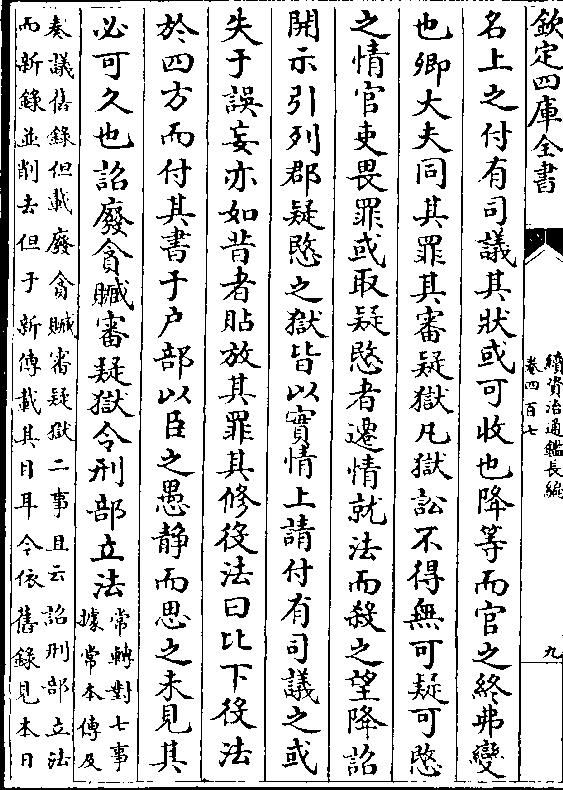 欽定四庫全書
續資治通鑑長編
卷四百七
九
名上之付有司議其狀或可收也降等而官之終弗變
也卿大夫同其罪其審疑獄凡獄訟不得無可疑可愍
之情官吏畏罪或取疑愍者遷情就法而殺之望降詔
開示引列郡疑愍之獄皆以實情上請付有司議之或
失于誤妄亦如昔者貼放其罪其修役法曰比下役法
於四方而付其書于户部以臣之愚靜而思之未見其
必可久也詔廢貪贓審疑獄令刑部立法
常轉對七事
據常本傳及
奏議舊錄但載廢貪贓審疑獄二事且云詔刑部立法
而新錄並削去但于新傳載其目耳今依舊錄見本日